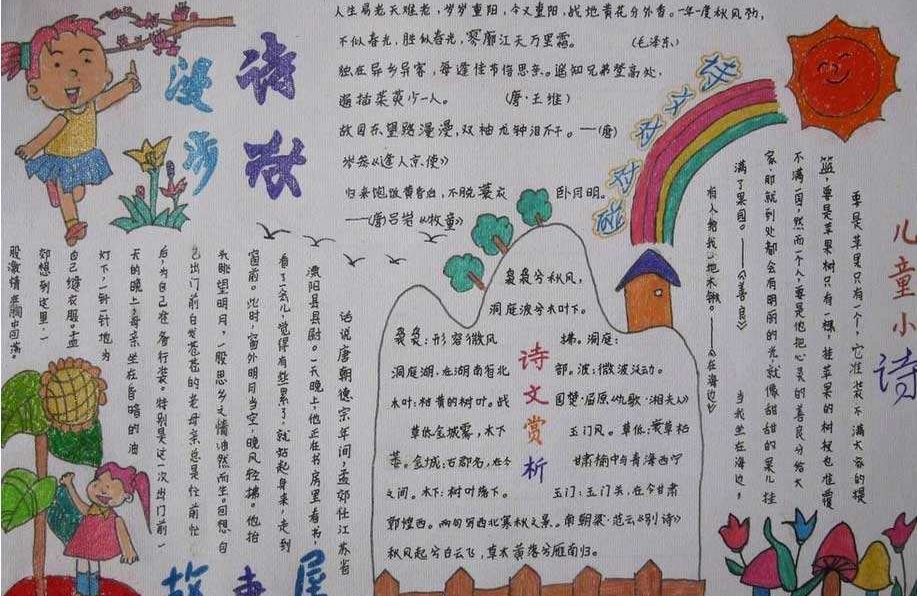 诗歌
漫步
人生易老天难老，岁岁重阳，今又重阳，战地黄花分外香。一年一度秋风劲，
不似春光，胜似春光，寥廓江天万里霜。（毛泽东）
独在异乡异客，每逢佳节倍思亲。遥知兄弟登高处，
遍插茱萸少一人。（唐·王维）
故园东望路漫漫，双袖龙钟泪不干。——（唐）
岑参《逢人京使》
归来饱饭黄昏后，不脱蓑衣卧月明。
——（唐吕岩《牧童》
碰
儿童小诗
要是苹果只有一个，它准装不满大家的提
篮，要是苹果树只有一棵，挂苹果的树杈也准覆
不满一园，然而一个人，要是他把心灵的善良分给大
家那就到处都会有明丽的光就像甜甜的果儿挂
满了果园。——《善良》
当我坐在海边，
有人给我小把木锹。——《在海边》
诗文赏析
袅袅兮秋风，
洞庭波兮木叶下。
袅袅：形容微风
拂。洞庭：
洞庭湖，在湖南省北
部。波：微波泛动。
木叶：枯黄的树叶。战
国楚·屈原《九歌·湘夫人》
草低金城雾，木下
玉门风。草低：黄草枯
萎。金城：古郡名，在今
甘肃榆中与青海西宁
之间。木下：树叶落下。
玉门：玉门关，在今甘肃
郭煌西。两句写西北寒秋之景。南朝梁·范云《别诗》
秋风起兮白云飞，草木黄落兮雁南归。
故事屋
话说唐朝德宗年间，孟郊任江苏省
溧阳县县尉。一天晚上，他正在书房里看书，
看了一会儿，觉得有些累了，就站起身来，走到
窗前。此时，窗外明月当空，晚风轻拂。他抬
头眺望明月，一股思乡之情油然而生。回想自
己出门前白发苍苍的老母亲总是任前忙
后，为自己准备行装。特别是这一次出门前一
天的晚上，母亲坐在昏暗的油
灯下，一针一针地为
自己缝衣服。孟
郊想到这里，一
股激情在胸中回荡。